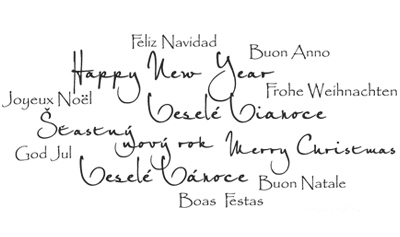 Feliz Navidad
Buon Anno
Happy New Year
Frohe Weihnachten
Joyeux Noël
Veselé Vianoce
Šťastný
nový rok
Merry Christmas
God Jul
Veselé Vánoce
Buon Natale
Boas Festas